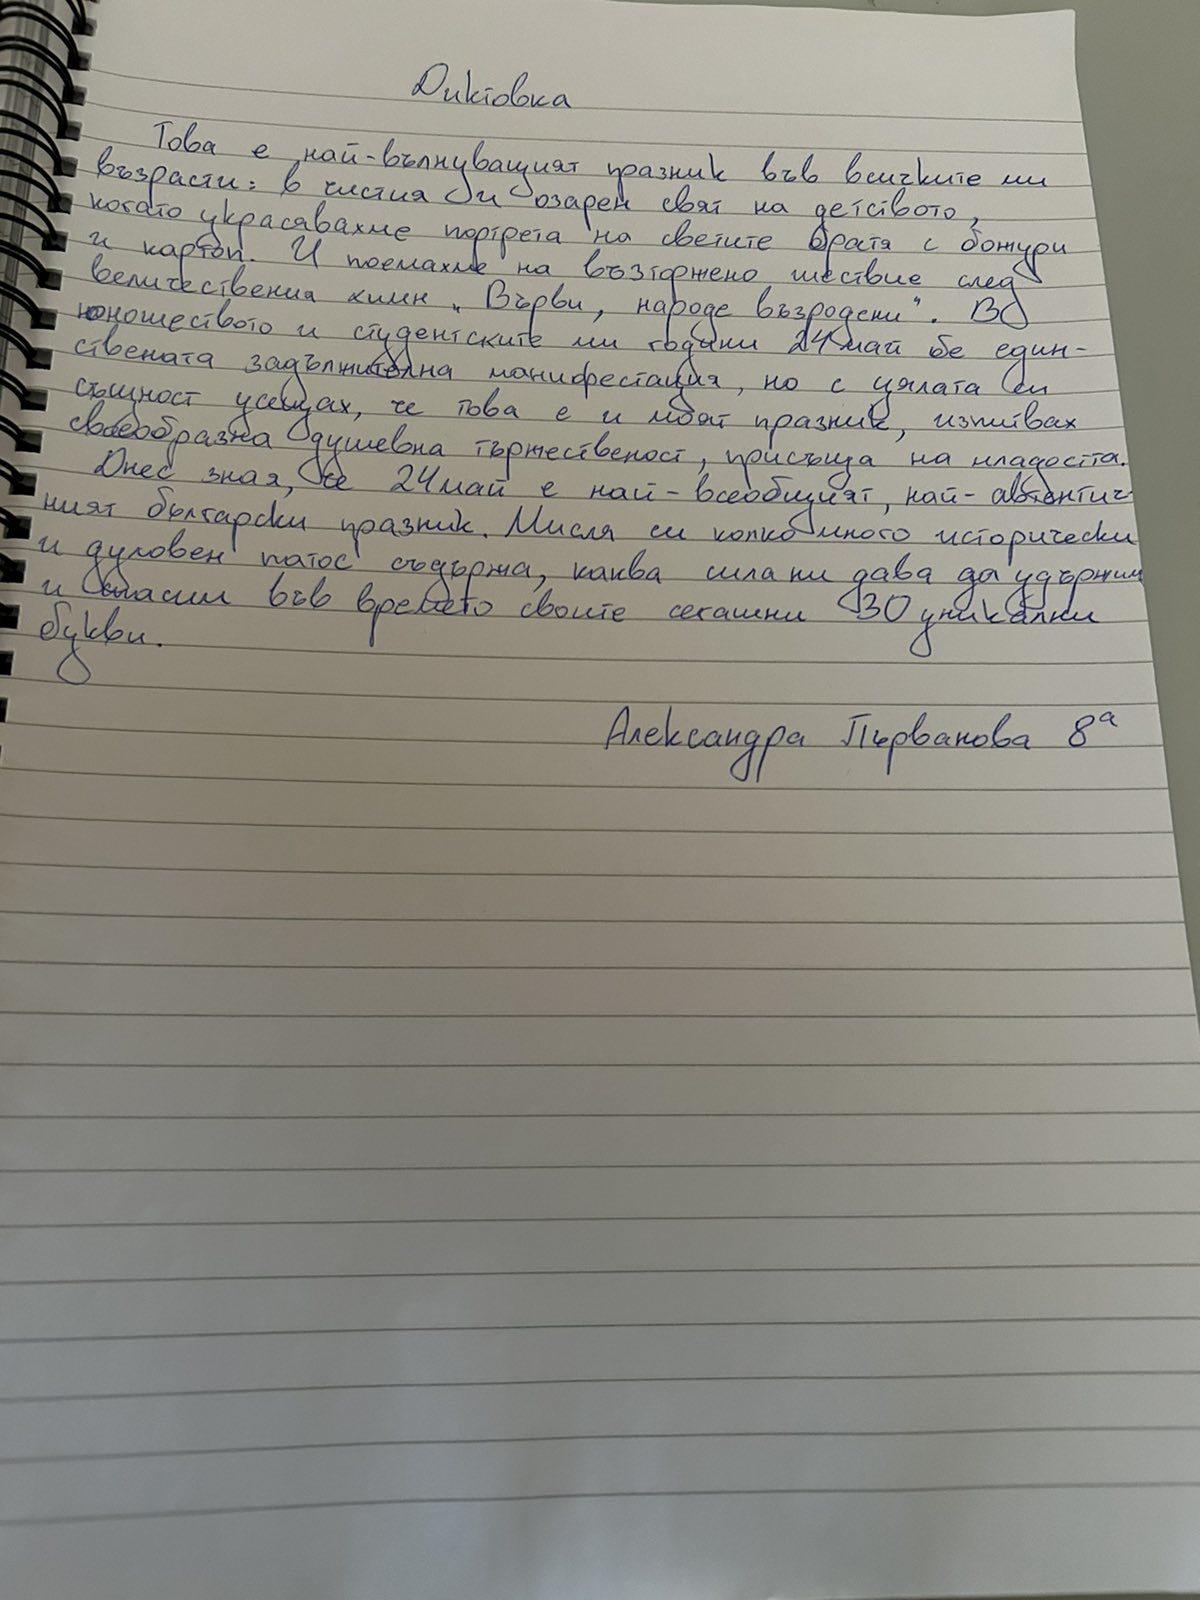 Диктовка
Това е най-вълнуващият празник във всичките ми
възрасти: в чистия и озарен свят на детството,
когато украсявахме портрета на светите братя с божури
и картоп. И поемахме на възторжено шествие след
величествения химн „Върви, народе възродени". В
юношеството и студентските ми години 24 май бе един-
ствената задължителна манифестация, но с цялата си
същност усещах, че това е и моят празник, изпитвах
своеобразна душевна тържественост, присъща на младостта.
Днес зная, че 24 май е най-всеобщият, най-автентич-
ният български празник. Мисля си колко много исторически
и духовен патос съдържа, каква сила ни дава да удържим
и спасим във времето своите сегашни 30 уникални
букви.
Александра Първанова 8ª